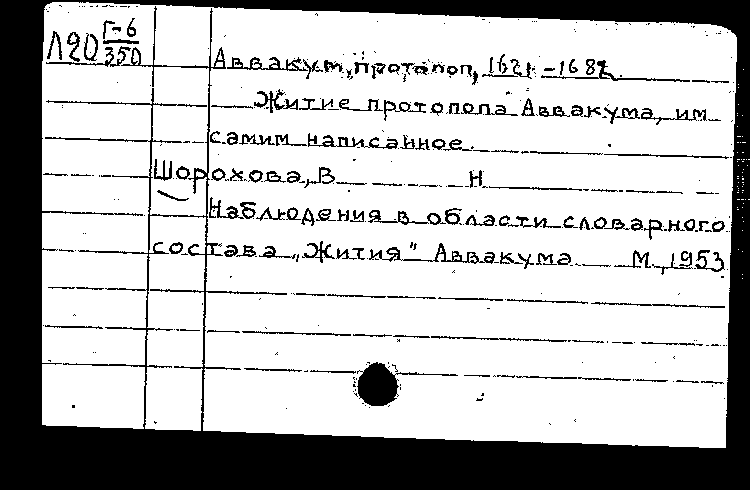 Л20 Г-6/350
Аввакум, протопоп, 1621-1682.
Житие протопопа Аввакума, им
самим написанное.
Шорохова, В Н
Наблюдения в области словарного
состава „Жития" Аввакума М., 1953